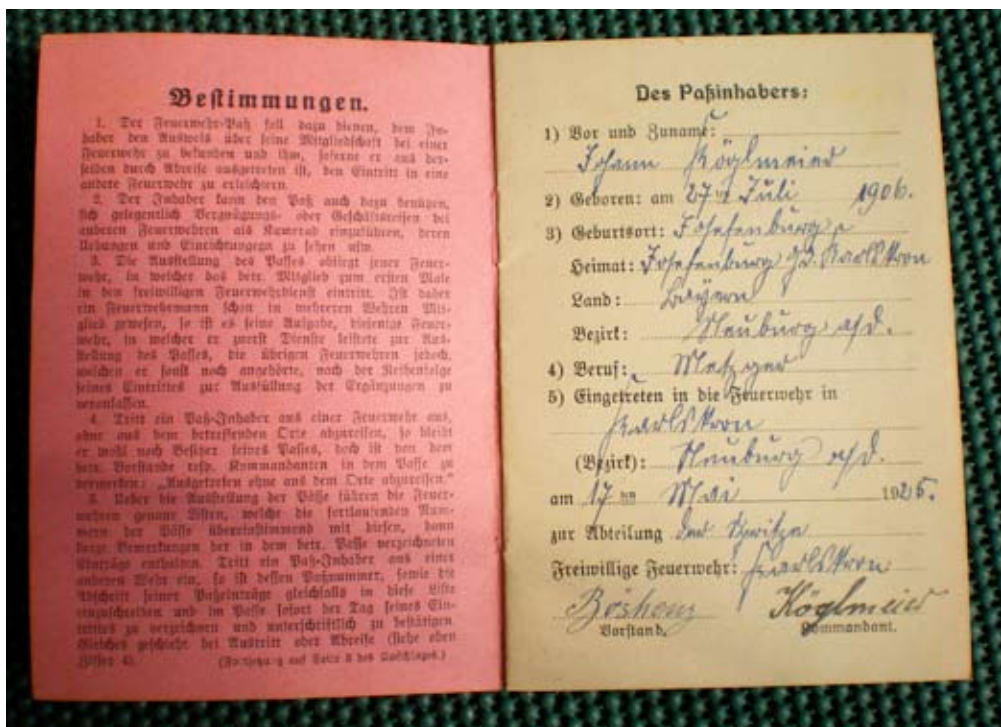 Bestimmungen.
1. Der Feuerwehr-Paß soll dazu dienen, dem In-
haber den Ausweis über seine Mitgliedschaft bei einer
Feuerwehr zu bekunden und ihm, soferne er aus der-
selben durch Abreise ausgetreten ist, den Eintritt in eine
andere Feuerwehr zu erleichtern.
2. Der Inhaber kann den Paß auch dazu benützen,
sich gelegentlich Vergnügungs- oder Geschäftsreisen bei
anderen Feuerwehren als Kamerad einzuführen, deren
Uebungen und Einrichtungen zu sehen usw.
3. Die Ausstellung des Passes obliegt jener Feuer-
wehr, in welcher das betr. Mitglied zum ersten Male
in den freiwilligen Feuerwehrdienst eintritt. Ist daher
ein Feuerwehrmann schon in mehreren Wehren Mit-
glied gewesen, so ist es seine Aufgabe, diejenige Feuer-
wehr, in welcher er zuerst Dienste leistete zur Aus-
stellung des Passes, die übrigen Feuerwehren jedoch,
welchen er sonst noch angehörte, nach der Reihenfolge
seines Eintrittes zur Ausfüllung der Ergänzungen zu
veranlassen.
4. Tritt ein Paß-Inhaber aus einer Feuerwehr aus,
ohne aus dem betreffenden Orte abzureisen, so bleibt
er wohl noch Besitzer seines Passes, doch ist von dem
betr. Vorstande resp. Kommandanten in dem Passe zu
vermerken: „Ausgetreten ohne aus dem Orte abzureisen."
5. Ueber die Ausstellung der Pässe führen die Feuer-
wehren genaue Listen, welche die fortlaufenden Num-
mern der Pässe übereinstimmend mit diesen, dann
kurze Bemerkungen der in dem betr. Passe verzeichneten
Einträge enthalten. Tritt ein Paß-Inhaber aus einer
anderen Wehr ein, so ist dessen Paßnummer, sowie die
Abschrift seiner Paßeinträge gleichfalls in diese Liste
einzuschreiben und im Passe sofort der Tag seines Ein-
trittes zu verzeichnen und unterschriftlich zu bestätigen
Gleiches geschieht bei Austritt oder Abreise (siehe oben
Ziffer 4).
(Fortsetzung auf Seite 3 des Umschlages.)
Des Paßinhabers:
1) Vor und Zuname:
Johann Köglmeier
2) Geboren: am 27ten Juli 1906.
3) Geburtsort: Josefenburg
Heimat: Josefenburg Gd. Karlskron
Land: Bayern
Bezirk: Neuburg a/d.
4) Beruf: Metzger
5) Eingetreten in die Feuerwehr in
Karlskron
(Bezirk): Neuburg a/d.
am 17ten Mai 1925.
zur Abteilung der Spritze
Freiwillige Feuerwehr: Karlskron
Köglmeier
Vorstand. Kommandant.